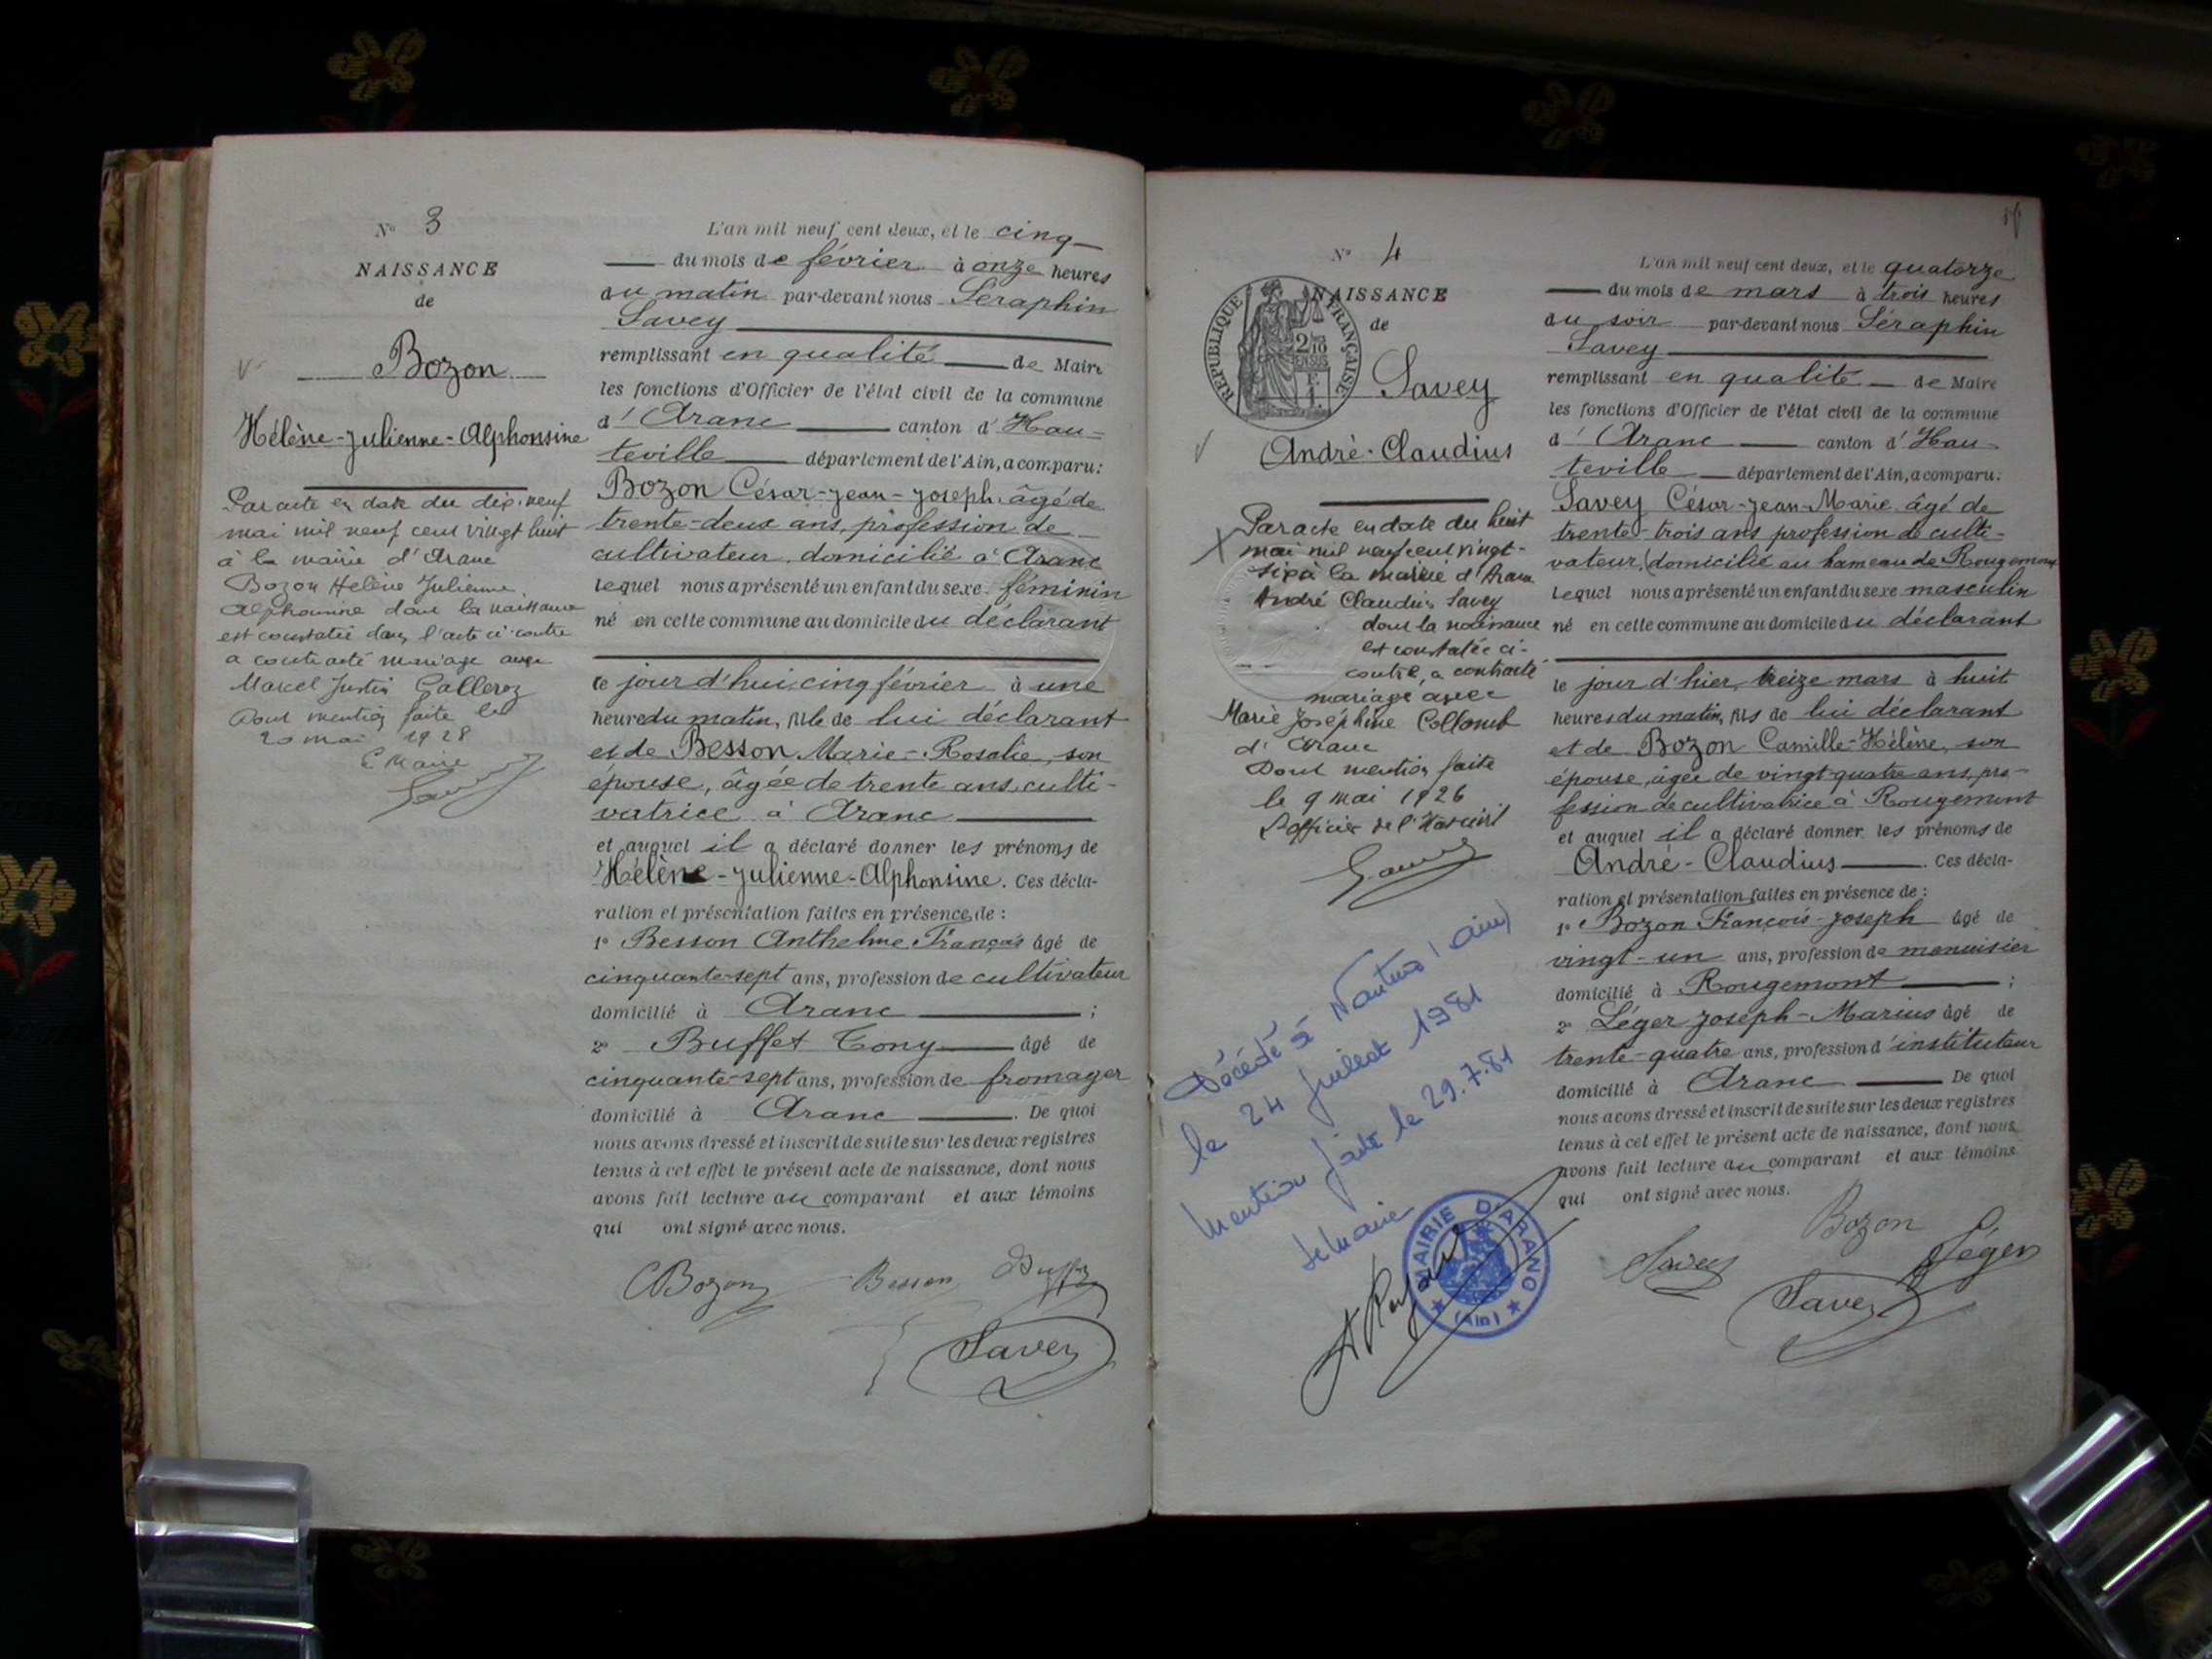 N° 3
NAISSANCE
de
Bozon
Hélène-Julienne-Alphonsine
Par acte en date du dix-neuf
mai mil neuf cent vingt huit
à la mairie d'Aranc
Bozon Hélène Julienne
Alphonsine dont la naissance
est constatée dans l'acte ci-contre
a contracté mariage avec
Marcel Justin Galleroz
Dont mention faite le
20 mai 1928
Maire
L'an mil neuf cent deux, et le cinq
du mois de février à onze heures
du matin par-devant nous Séraphin
Savey
remplissant en qualité de Maire
les fonctions d'Officier de l'état civil de la commune
d'Aranc canton d'Hau-
teville département de l'Ain, a comparu:
Bozon César-Jean-Joseph, âgé de
trente-deux ans, profession de
cultivateur domicilié à Aranc
lequel nous a présenté un enfant du sexe féminin
né en cette commune au domicile du déclarant
le jour d'hui, cinq février à une
heure du matin, fille de lui déclarant
et de Besson Marie-Rosalie, son
épouse, âgée de trente ans, culti-
vatrice à Aranc
et auquel il a déclaré donner les prénoms de
Hélène-Julienne-Alphonsine. Ces décla-
ration et présentation faites en présence de :
1° Besson Anthelme François âgé de
cinquante-sept ans, profession de cultivateur
domicilié à Aranc ;
2° Buffet Tony âgé de
cinquante-sept ans, profession de fromager
domicilié à Aranc. De quoi
nous avons dressé et inscrit de suite sur les deux registres
tenus à cet effet le présent acte de naissance, dont nous
avons fait lecture au comparant et aux témoins
qui ont signé avec nous.
CBozon Besson Buffet
Savey
N° 4
NAISSANCE
de
REPUBLIQUE FRANÇAISE
Savey
André-Claudius
Par acte en date du huit
mai mil neuf cent vingt-
six à la mairie d'Aranc
André Claudius Savey
dont la naissance
est constatée ci-
contre, a contracté
mariage avec
Marie Joséphine Collomb
d'Aranc
Dont mention faite
le 9 mai 1926
L'officier de l'état civil
Décédé à Nantua (Ain)
le 24 juillet 1981
Mention faite le 29.7.81
Le Maire
MAIRIE D'ARANC
(Ain)
L'an mil neuf cent deux, et le quatorze
du mois de mars à trois heures
du soir par-devant nous Séraphin
Savey
remplissant en qualité de Maire
les fonctions d'Officier de l'état civil de la commune
d'Aranc canton d'Hau-
teville département de l'Ain, a comparu:
Savey César-Jean-Marie âgé de
trente-trois ans profession de culti-
vateur, domicilié au hameau de Rougemont
lequel nous a présenté un enfant du sexe masculin
né en cette commune au domicile du déclarant
le jour d'hier, treize mars à huit
heures du matin, fils de lui déclarant
et de Bozon Camille-Hélène, son
épouse, âgée de vingt-quatre ans, pro-
fession de cultivatrice à Rougemont
et auquel il a déclaré donner les prénoms de
André-Claudius. Ces décla-
ration et présentation faites en présence de :
1° Bozon François-Joseph âgé de
vingt-un ans, profession de menuisier
domicilié à Rougemont ;
2° Léger Joseph-Marius âgé de
trente-quatre ans, profession d'instituteur
domicilié à Aranc De quoi
nous avons dressé et inscrit de suite sur les deux registres
tenus à cet effet le présent acte de naissance, dont nous
avons fait lecture au comparant et aux témoins
qui ont signé avec nous.
Bozon
Savey Léger
Savey